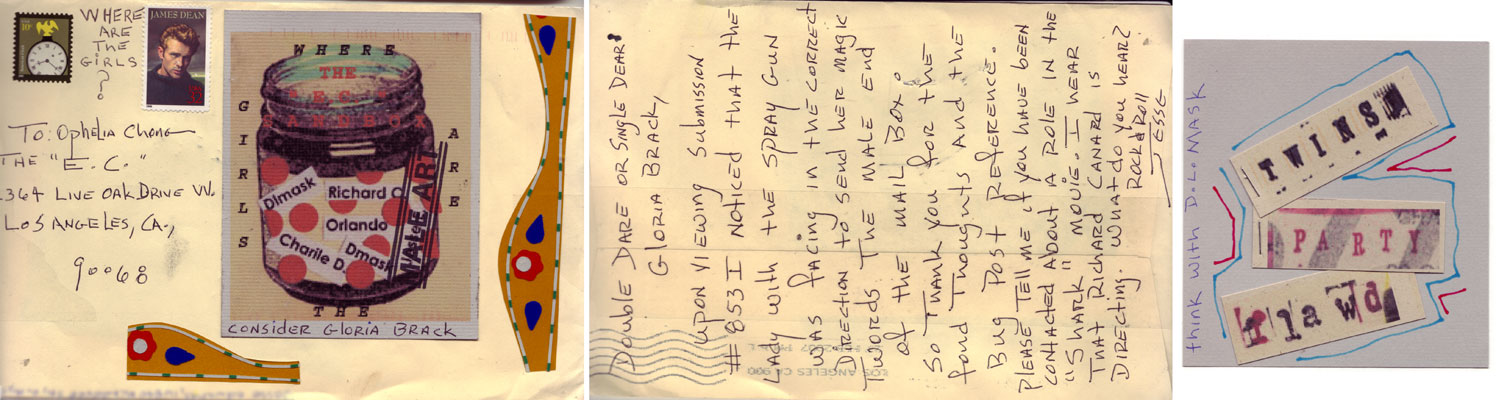 10¢
JAMES DEAN
WHERE
ARE
THE
GIRLS
?
To: Ophelia Chong
THE "E.C."
LIVE OAK DRIVE W.
LOS ANGELES, CA.,
90068
WHERE
GIRLS
ARE
THE
THE
Dimask
Richard C.
Orlando
Charlie D.
Dmask
MALE ART
CONSIDER GLORIA BRACK
DOUBLE DARE OR SINGLE DEAR
GLORIA BRACK,
UPON VIEWING SUBMISSION
# 853 I NOTICED THAT THE
LADY WITH THE SPRAY GUN
WAS FACING IN THE CORRECT
DIRECTION TO SEND HER MAGIC
TWORDS THE MALE END
OF THE MAIL BOX.
SO THANK YOU FOR THE
FOUND THOUGHTS AND THE
BUG POST REFERENCE.
PLEASE TELL ME IF YOU HAVE BEEN
CONTACTED ABOUT A ROLE IN THE
"SHARK" MOVIE. I HEAR
THAT RICHARD CANARD IS
DIRECTING. WHAT DO YOU HEAR?
ROCK & ROLL
LOS ANGELES CA 900
think with DOLO MASK
TWINS
PARTY
flawd